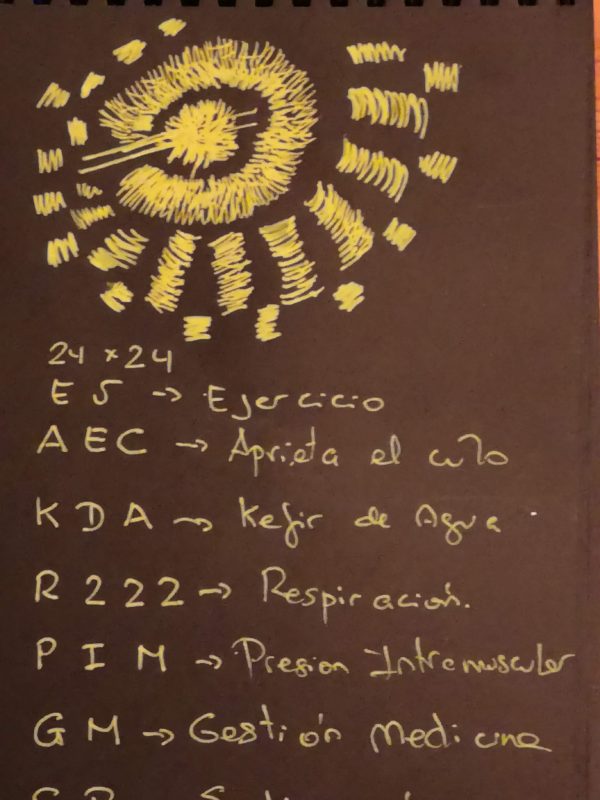 24 x 24
E 5 → Ejercicio
A E C → Aprieta el culo
K D A → Kefir de Agua
R 2 2 2 → Respiración.
P I M → Presion Intramuscular
G M → Gestión Medicina